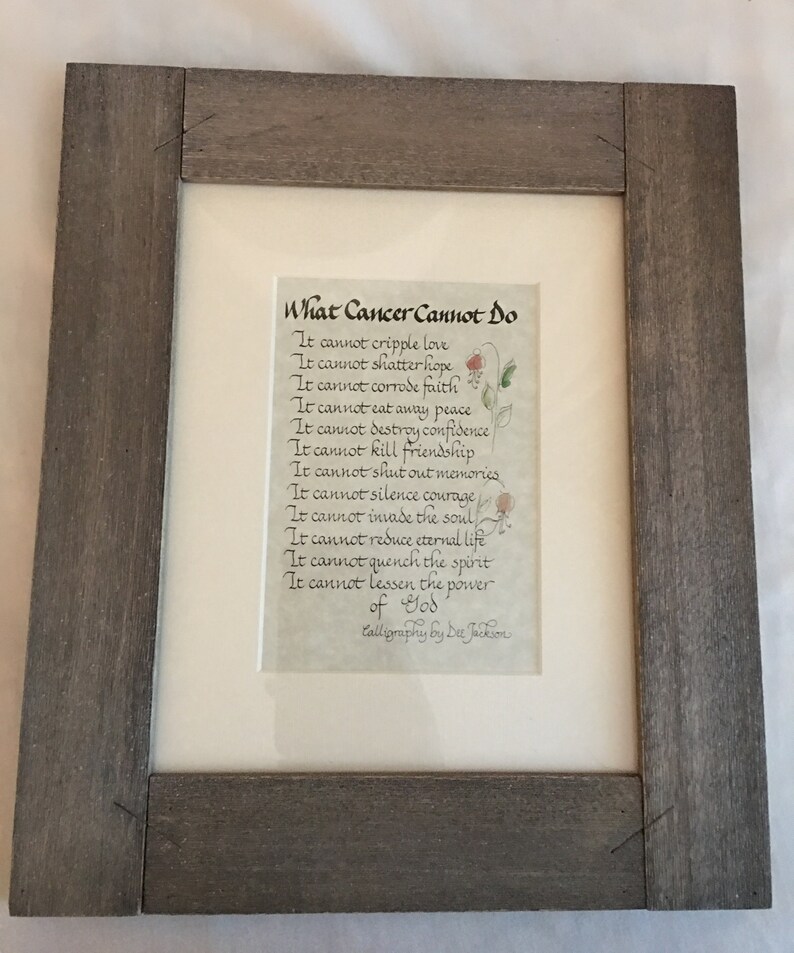 What Cancer Cannot Do
It cannot cripple love
It cannot shatter hope
It cannot corrode faith
It cannot eat away peace
It cannot destroy confidence
It cannot kill friendship
It cannot shut out memories
It cannot silence courage
It cannot invade the soul
It cannot reduce eternal life
It cannot quench the spirit
It cannot lessen the power
of God
Calligraphy by Dee Jackson